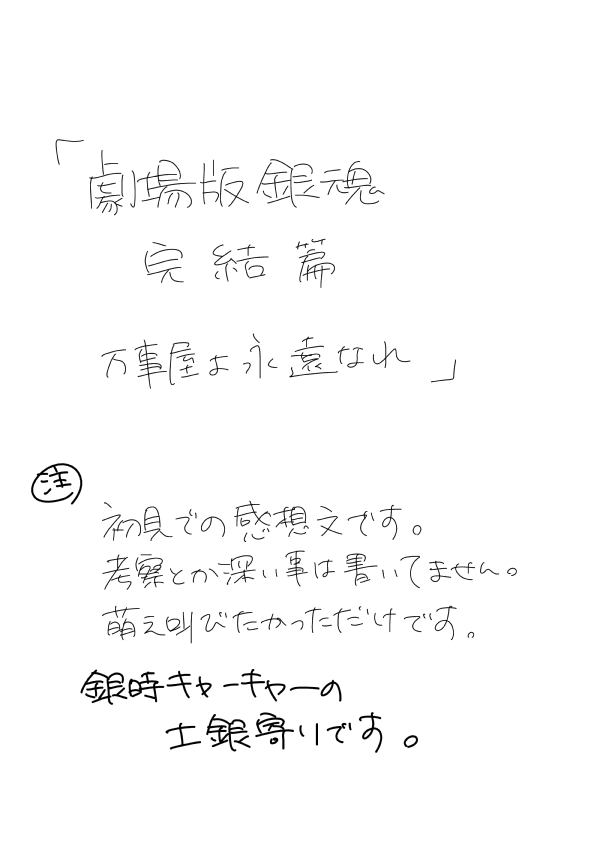 「劇場版銀魂
完結篇
万事屋よ永遠なれ」
注
初見での感想文です。
考察とか深い事は書いてません。
萌え叫びたかっただけです。
銀時キャーキャーの
土銀寄りです。